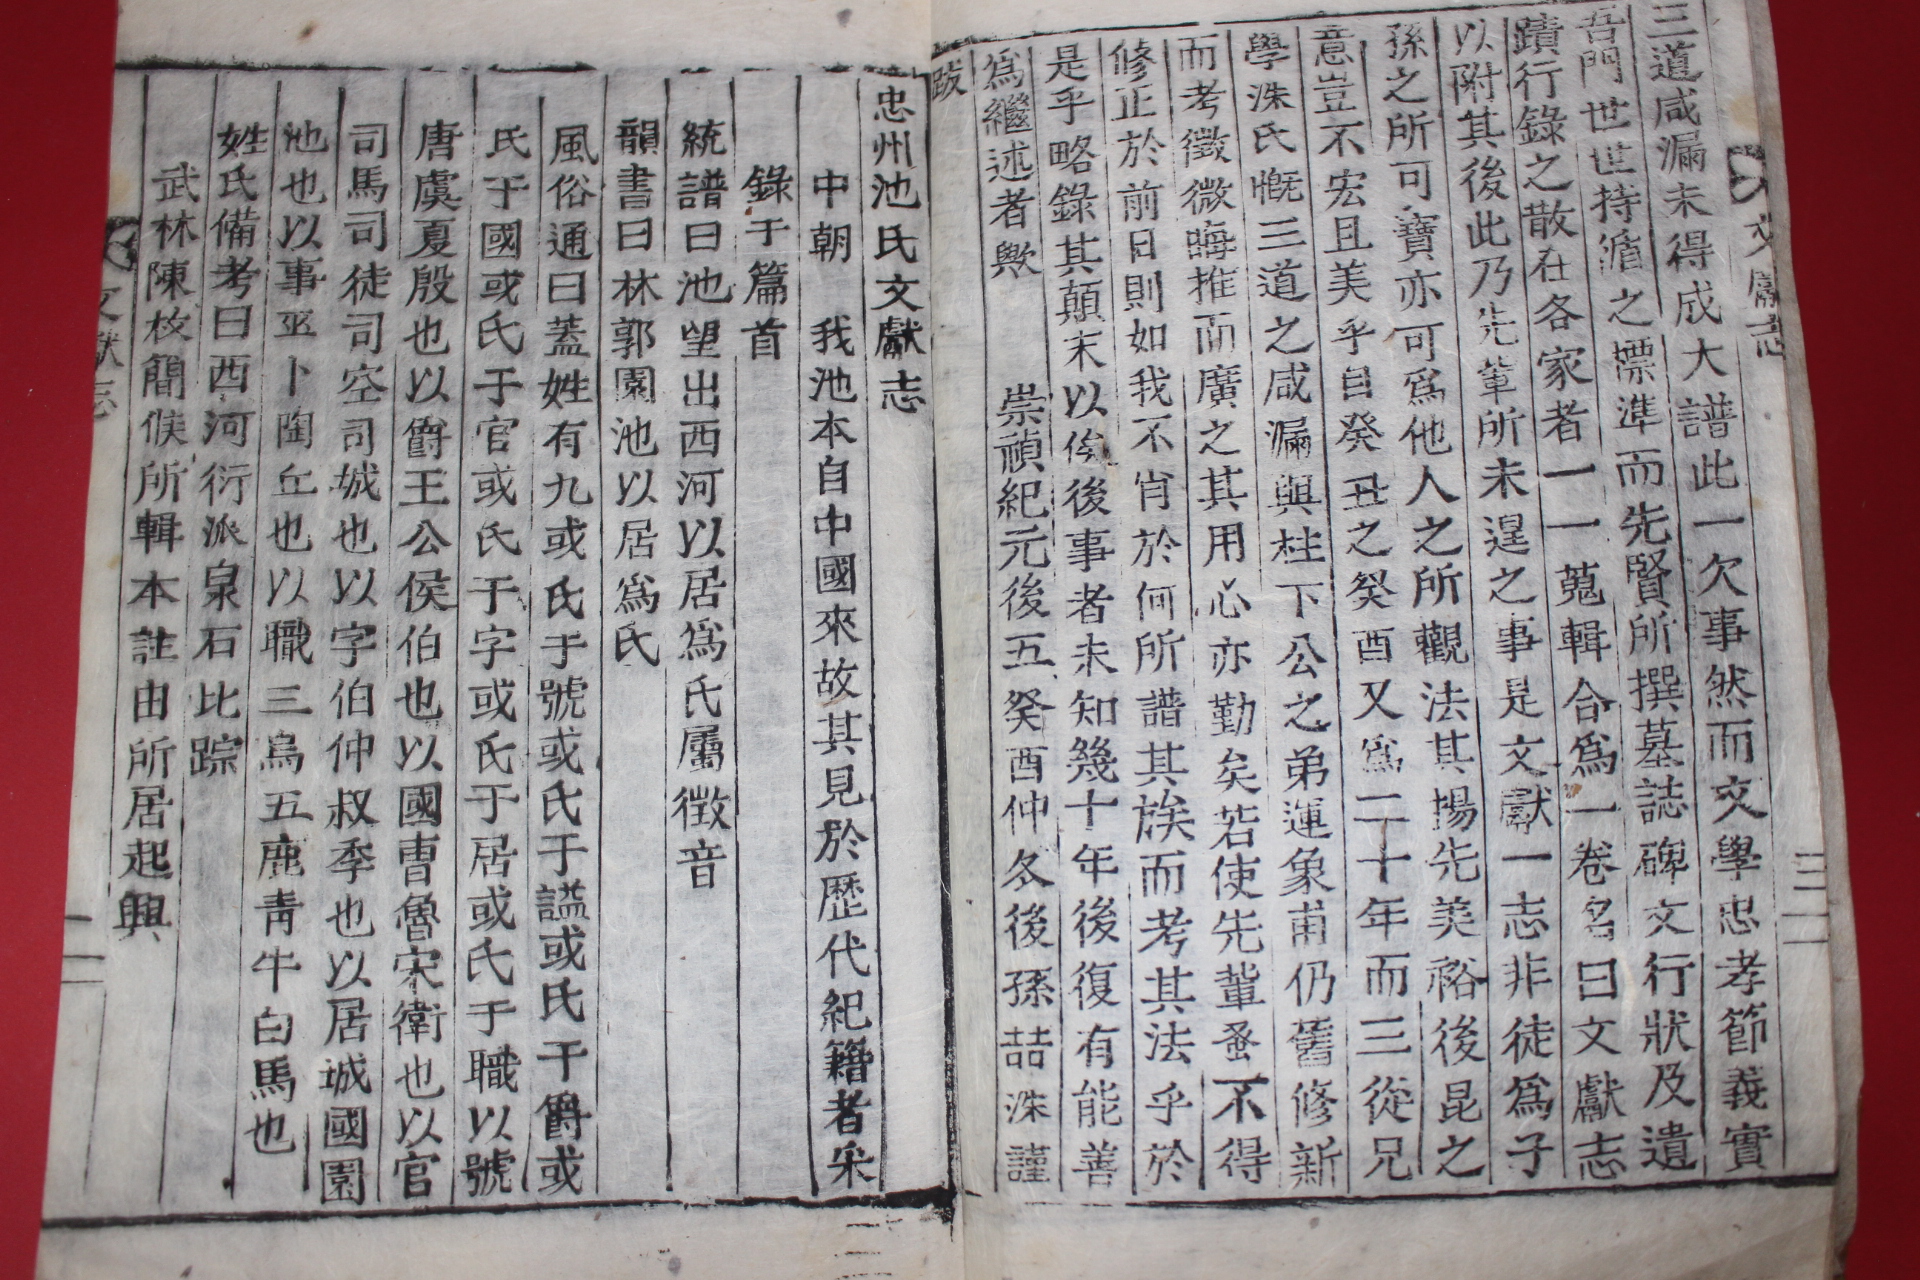 三道咸漏未得成大譜此一欠事然而文學忠孝節義實
吾門世世持循之標準而先賢所撰墓誌碑文行狀及遺
蹟行錄之散在各家者一一蒐輯合爲一卷名曰文獻志
以附其後此乃先輩所未遑之事是文獻一志非徒爲子
孫之所可寶亦可爲他人之所觀法其揚先美裕後昆之
意豈不宏且美乎自癸丑之癸酉又爲二十年而三從兄
學洙氏慨三道之咸漏與柱下公之弟運象甫仍舊修新
而考徵微晦推而廣之其用心亦勤矣若使先輩蚤不得
修正於前日則如我不肖於何所譜其族而考其法乎於
是乎略錄其顛末以俟後事者未知幾十年後復有能善
爲繼述者歟 崇禎紀元後五癸酉仲冬後孫喆洙謹
跋
忠州池氏文獻志
中朝 我池本自中國來故其見於歷代紀籍者采
錄于篇首
統譜曰池望出西河以居爲氏屬徵音
韻書曰林郭園池以居爲氏
風俗通曰蓋姓有九或氏于號或氏于謚或氏于爵或
氏于國或氏于官或氏于字或氏于居或氏于職以號
唐虞夏殷也以爵王公侯伯也以國曺魯宋衛也以官
司馬司徒司空司城也以字伯仲叔季也以居城國園
池也以事巫卜陶丘也以職三烏五鹿靑牛白馬也
姓氏備考曰西河衍派泉石比踪
武林陳枚簡侯所輯本註由所居起興
文獻志
三
文獻志
一